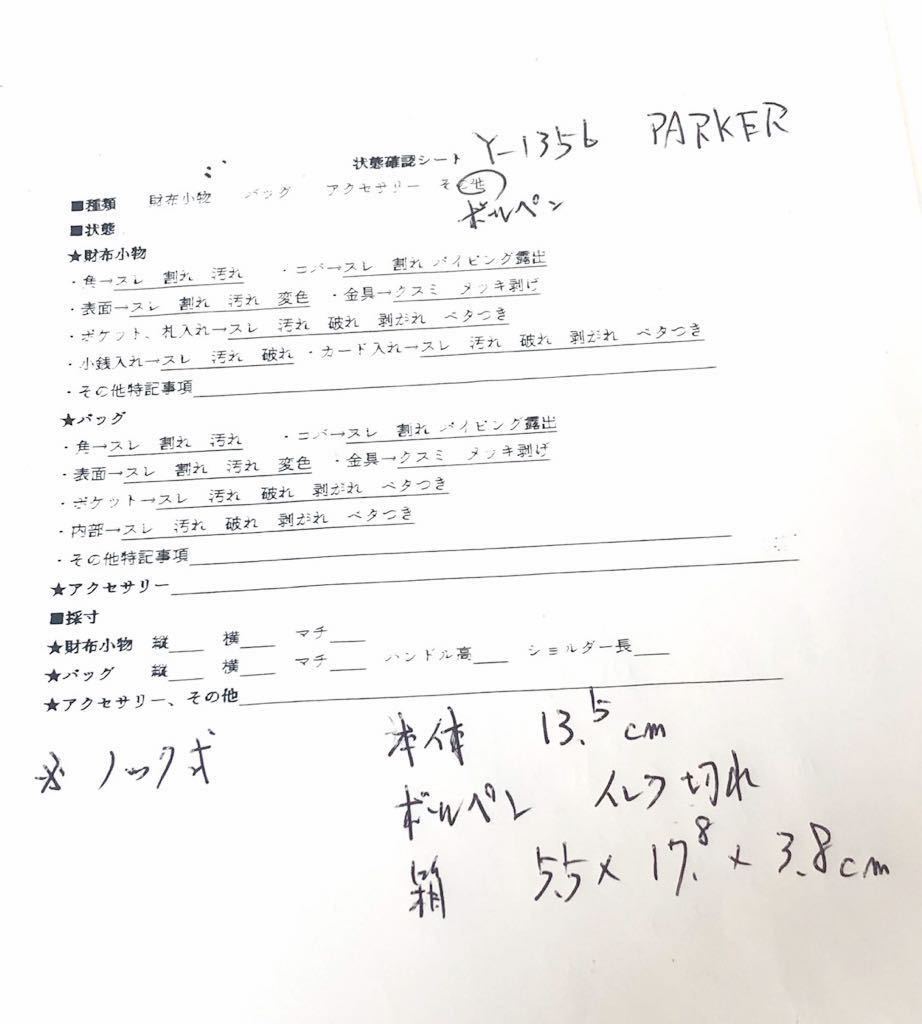 状態確認シート Y-1356 PARKER
■種類 財布小物 バッグ アクセサリー その他
ボールペン
■状態
★財布小物
・角→スレ 割れ 汚れ ・コバ→スレ 割れ パイピング露出
・表面→スレ 割れ 汚れ 変色 ・金具→クスミ メッキ剥げ
・ポケット、札入れ→スレ 汚れ 破れ 剥がれ ベタつき
・小銭入れ→スレ 汚れ 破れ ・カード入れ→スレ 汚れ 破れ 剥がれ ベタつき
・その他特記事項
★バッグ
・角→スレ 割れ 汚れ ・コバ→スレ 割れ パイピング露出
・表面→スレ 割れ 汚れ 変色 ・金具→クスミ メッキ剥げ
・ポケット→スレ 汚れ 破れ 剥がれ ベタつき
・内部→スレ 汚れ 破れ 剥がれ ベタつき
・その他特記事項
★アクセサリー
■採寸
★財布小物 縦 横 マチ
★バッグ 縦 横 マチ ハンドル高 ショルダー長
★アクセサリー、その他
※ ノック式 本体 13.5cm
ボールペン インク切れ
箱 5.5×17.8×3.8cm